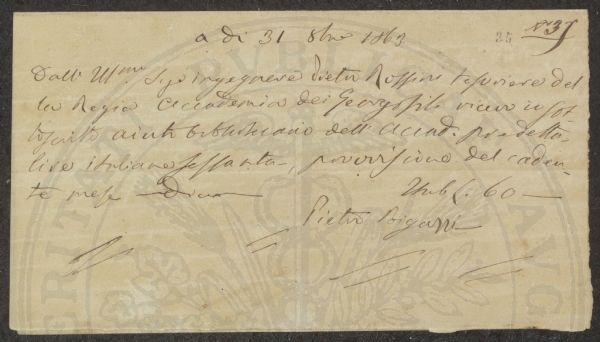 a di 31 8bre 1863
35
N° 35
Dall' Ill.mo Sig.r ingegnere Pietro Rossini tesoriere del
la Regia Accademia dei Georgofili ricevo io sot
toscritto aiuto bibliotecario dell' Accad. predetta
lire italiane sessanta, provvisione del caden-
te mese Dico
It. L. 60
Pietro Bigazzi
PUBLI
AVG